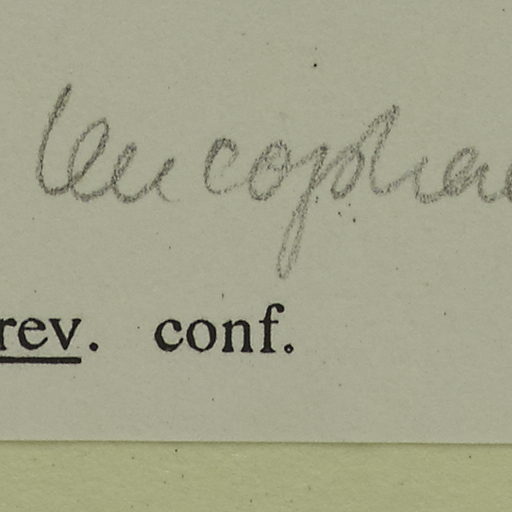 leucophae
rev. conf.